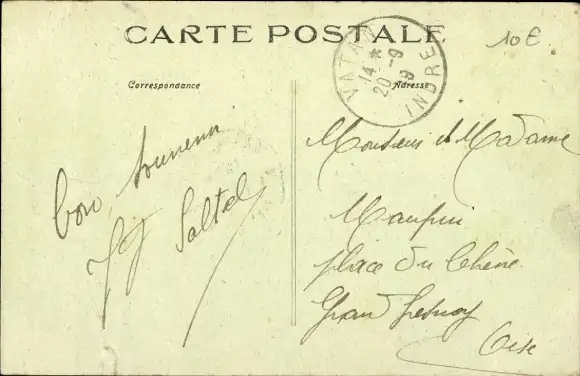 CARTE POSTALE
10 €
Correspondance
Adresse
VATAN
14 *
20 -9
19
INDRE
Bon souvenir
Saltel
Monsieur et Madame
Maupin
place du Chêne
Grand Fresnoy
Oise